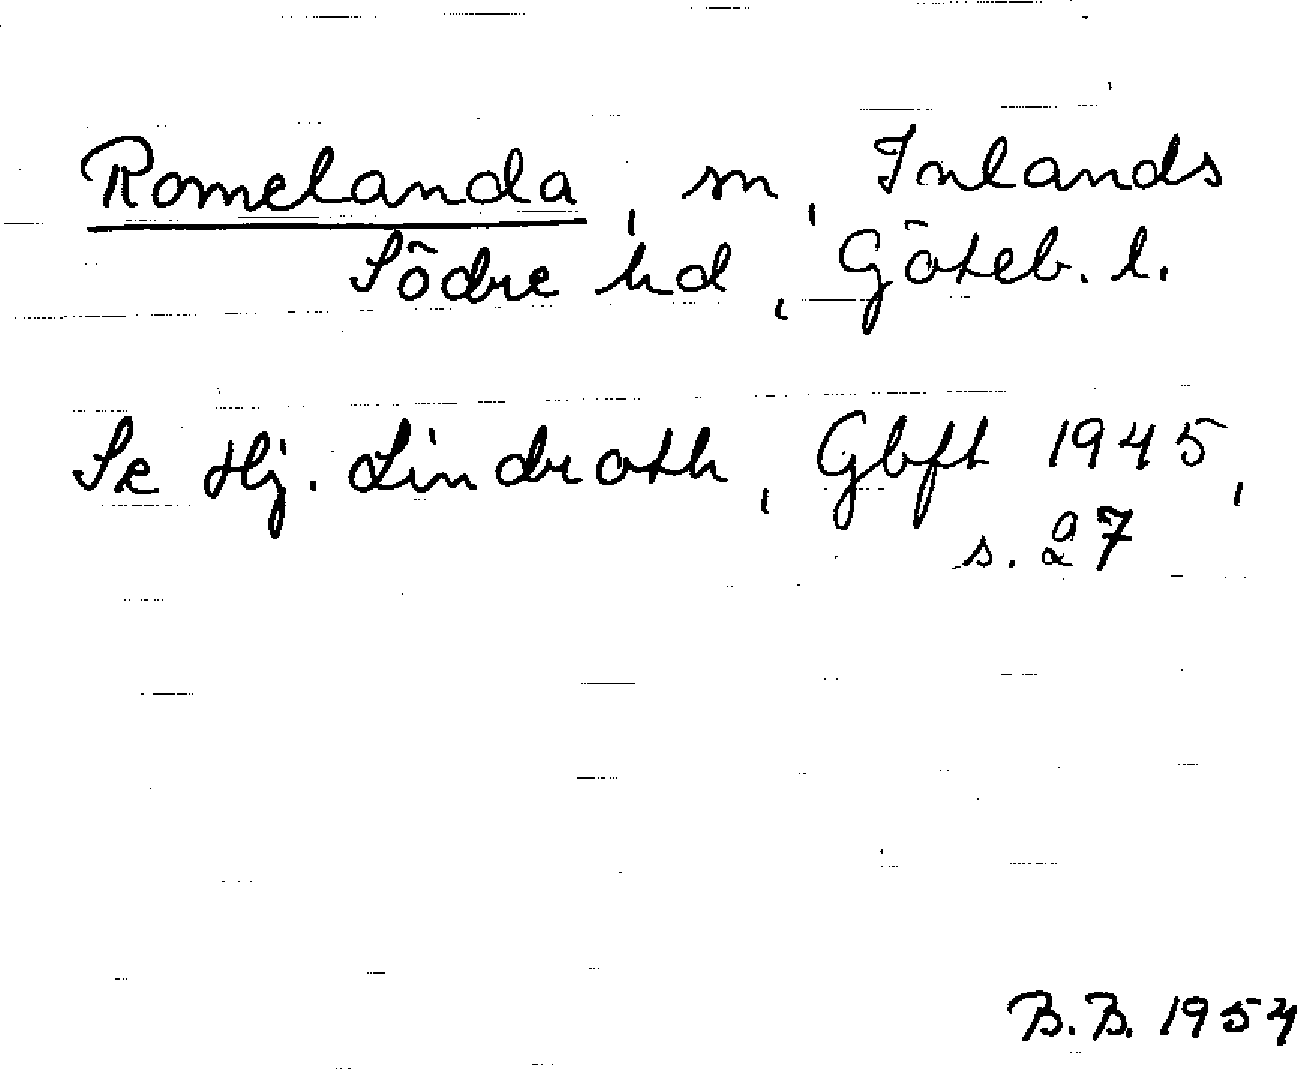 Romelanda, sn, Inlands
Södre hd, Göteb. l.
Se Hj. Lindroth, Gbft 1945,
s. 27
B.B. 1954